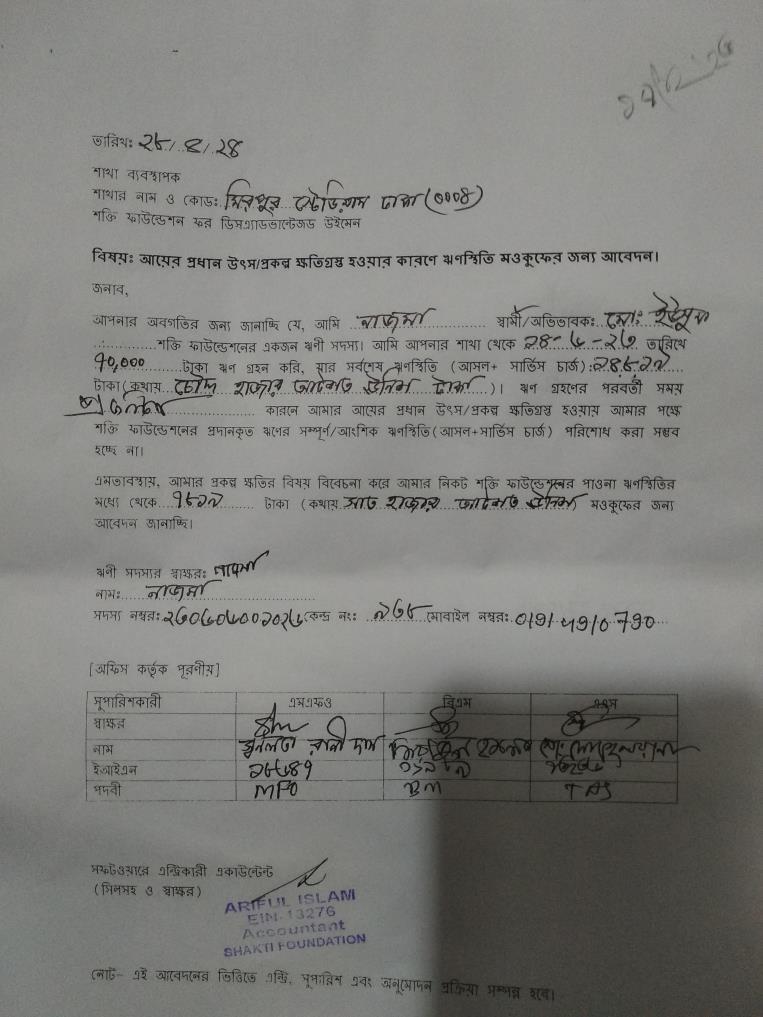 তারিখঃ ২৮/৪/২৪
শাখা ব্যবস্থাপক
শাখার নাম ও কোডঃ মিরপুর স্টেডিয়াম ঢাকা (০০০৪)
শক্তি ফাউন্ডেশন ফর ডিসএ্যাডভান্টেজড উইমেন
বিষয়ঃ আয়ের প্রধান উৎস/প্রকল্প ক্ষতিগ্রস্থ হওয়ার কারণে ঋণস্থিতি মওকুফের জন্য আবেদন।
জনাব,
আপনার অবগতির জন্য জানাচ্ছি যে, আমি নাজমা স্বামী/অভিভাবকঃ মোঃ ইউসুফ
শক্তি ফাউন্ডেশনের একজন ঋনী সদস্য। আমি আপনার শাখা থেকে তারিখে
৭০,০০০ টাকা ঋণ গ্রহন করি, যার সর্বশেষ ঋণস্থিতি (আসল+ সার্ভিস চার্জ) ঃ ১৪৮১৯
টাকা (কথায় চৌদ্দ হাজার আটশত উনিশ টাকা)। ঋণ গ্রহণের পরবর্তী সময়
কারনে আমার আয়ের প্রধান উৎস/প্রকল্প ক্ষতিগ্রস্থ হওয়ায় আমার পক্ষে
শক্তি ফাউন্ডেশনের প্রদানকৃত ঋণের সম্পূর্ণ/আংশিক ঋণস্থিতি (আসল+সার্ভিস চার্জ) পরিশোধ করা সম্ভব
হচ্ছে না।
এমতাবস্থায়, আমার প্রকল্প ক্ষতির বিষয় বিবেচনা করে আমার নিকট শক্তি ফাউন্ডেশনের পাওনা ঋণস্থিতির
মধ্যে থেকে ৭৮১৯ টাকা (কথায় সাত হাজার আটশত উনিশ মওকুফের জন্য
আবেদন জানাচ্ছি।
ঋনী সদস্যর স্বাক্ষরঃ নাজমা
নামঃ নাজমা
সদস্য নম্বরঃ কেন্দ্র নং: ৯৬৮ মোবাইল নম্বরঃ
[অফিস কর্তৃক পূরণীয়]
সুপারিশকারী এমএফও বিএম এএস
স্বাক্ষর
নাম রানী দাস
ইআইএন
পদবী MFO BM TAS
সফটওয়ারে এন্ট্রিকারী একাউন্টেন্ট
(সিলসহ ও স্বাক্ষর)
ARIFUL ISLAM
EIN-13276
Accountant
SHAKTI FOUNDATION
নোট- এই আবেদনের ভিত্তিতে এন্ট্রি, সুপারিশ এবং অনুমোদন প্রক্রিয়া সম্পন্ন হবে।